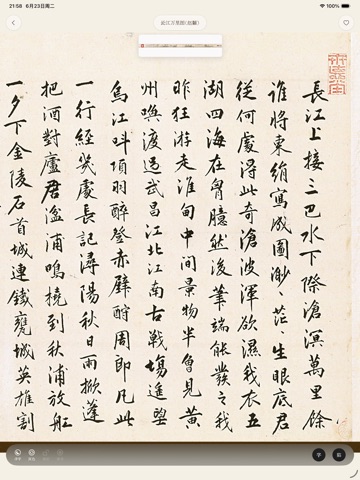 21:58 6月23日周二
100%
长江万里图(赵黻)
長江上接三巴水下際滄溟萬里餘
誰將東絹寫成圖渺茫生眼底君
從何處得此奇滄波渾欲濕我衣五
湖四海在胷臆然後筆端能發之我
昨狂遊走淮甸中間景物半曾見黃
州喚渡過武昌江北江南古戰塲遙望
烏江叫項羽醉登赤壁酹周郎凡此
一行經幾處長記潯陽秋日雨掀蓬
把酒對廬君湓浦鳴橈到秋浦放舡
一夕下金陵石首城連鐵甕城英雄割